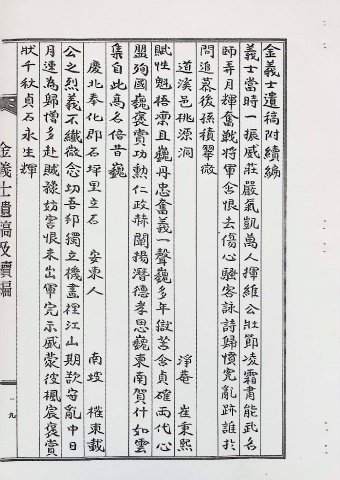 金義士遺稿附續編
義士當時一振威莊嚴氣凱萬人揮維公壯節凌霜肅能武名
師弄月輝奮戰將軍含恨去傷心騷客詠詩歸憤寃亂跡誰於
問追慕後孫積翠微
道溪邑桃源洞 淨菴 崔秉熙
賦性魁梧凜且巍丹忠奮義一聲巍多年獄苦含貞確兩代心
盟殉國巍褒賞功勲仁政赫闡揚潛德孝思巍東南賀什如雲
集自此高名倍昔巍
慶北奉化郡石坪里立石 安東人 南坡 權東載
公之烈義不纖微念切吾邦獨立機畫裡江山期歎妄亂中日
月速為歸憎多赴賊祿妨害恨未出軍完示威蒙彼楓宸褒賞
狀千秋貞石永生輝
金義士遺稿及續編
一九